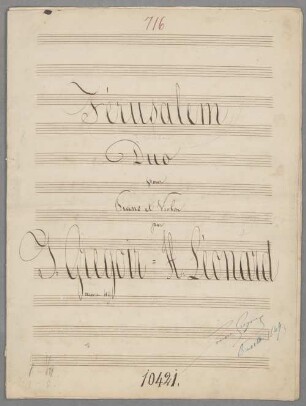 716
Jérusalem
Duo
pour
Piano et Violon
par
J. Gregoir = H. Léonard
10421.